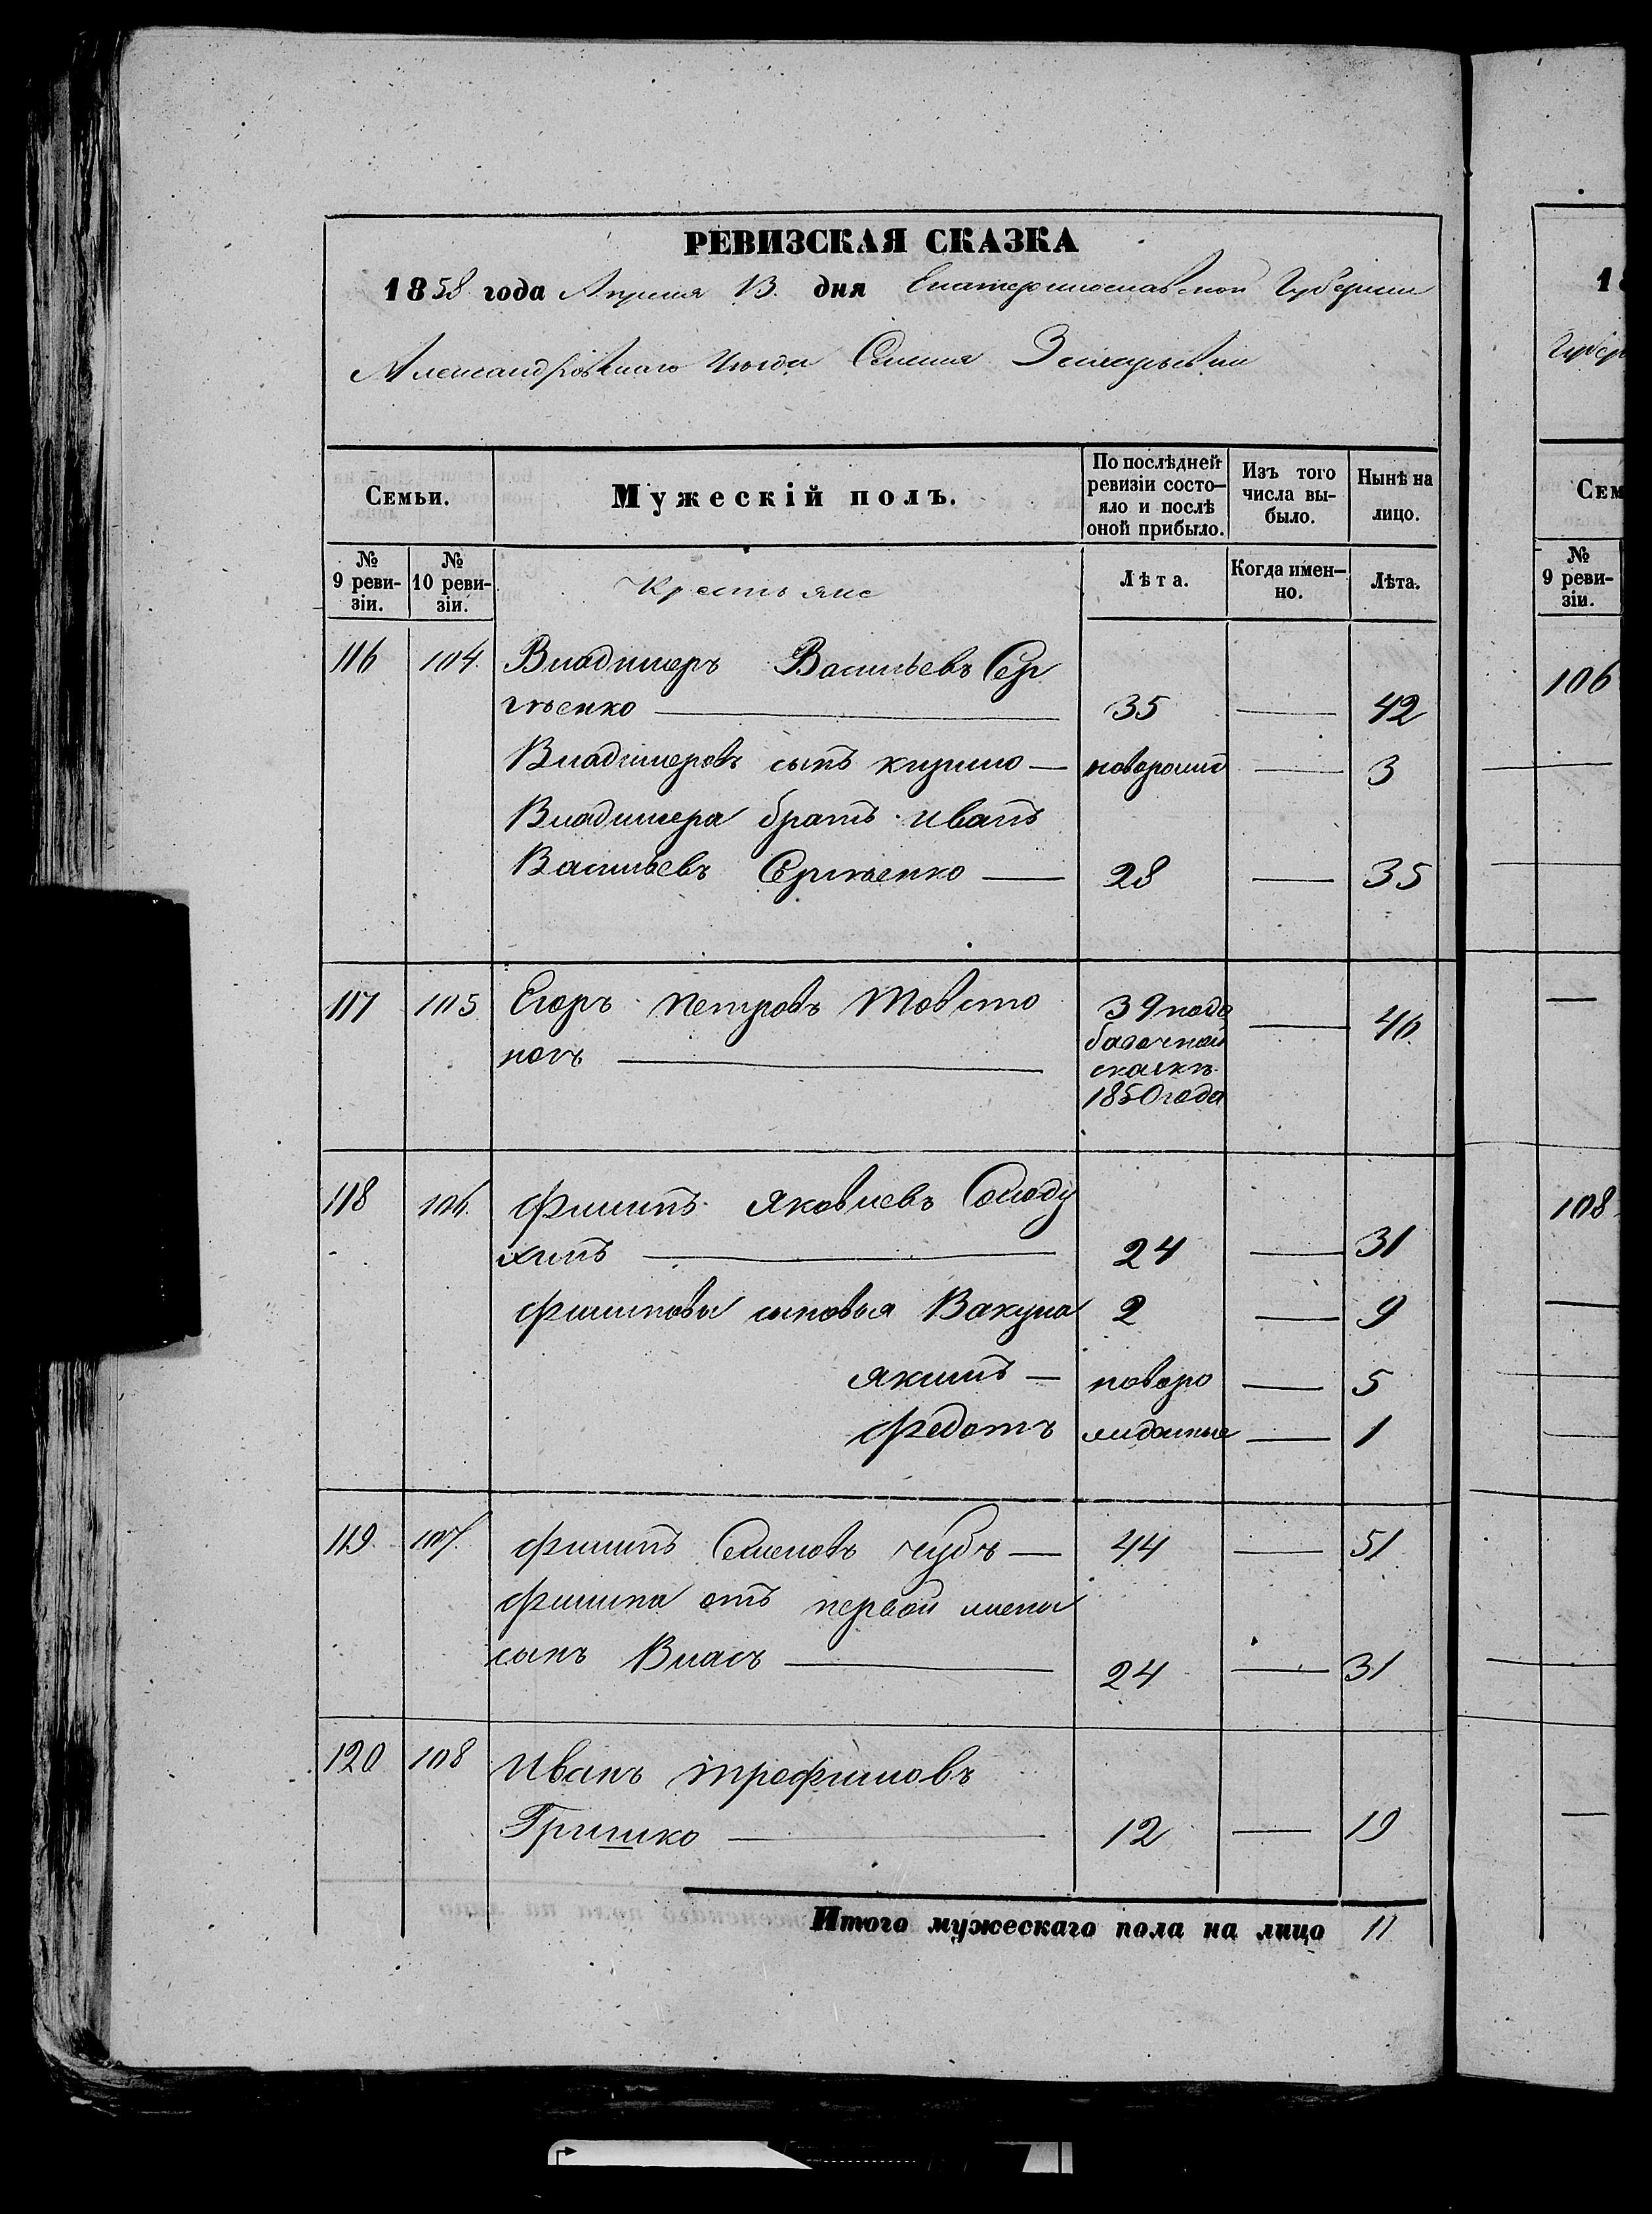 РЕВИЗСКАЯ СКАЗКА
1858 года Апреля 13. дня Екатеринославской Губернии
Александровскаго Уезда Селенія
Семьи.
Мужескій полъ.
По послѣдней ревизіи состояло и послѣ оной прибыло.
Изъ того числа выбыло.
Нынѣ на лицо.
№ 9 ревизіи.
№ 10 ревизіи.
Крестьяне
Лѣта.
Когда именно.
Лѣта.
116 104. Владимеръ Васильевъ Сер
гѣенко — 35 — 42
Владимеровъ сынъ кирило — новорожд — 3
Владимера братъ иванъ
Васильевъ Сергѣенко — 28 — 35
117 105 Егоръ петровъ Товсто
ногъ — 39 подо
бавочной
сказкѣ
1850 года — 46
118 106. Филипъ яковлевъ Солоду
хинъ — 24 — 31
Филиповы сыновья Вакула 2 — 9
якимъ — новоро — 5
Федотъ жданные — 1
119. 107. Филипъ Семеновъ чубъ — 44 — 51
Филипа отъ первой жены
сынъ Власъ — 24 — 31
120 108 Иванъ трофимовъ
Гришко — 12 — 19
Итого мужескаго пола на лицо 11
18
Губер
Сем
№ 9 ревизіи.
106
108